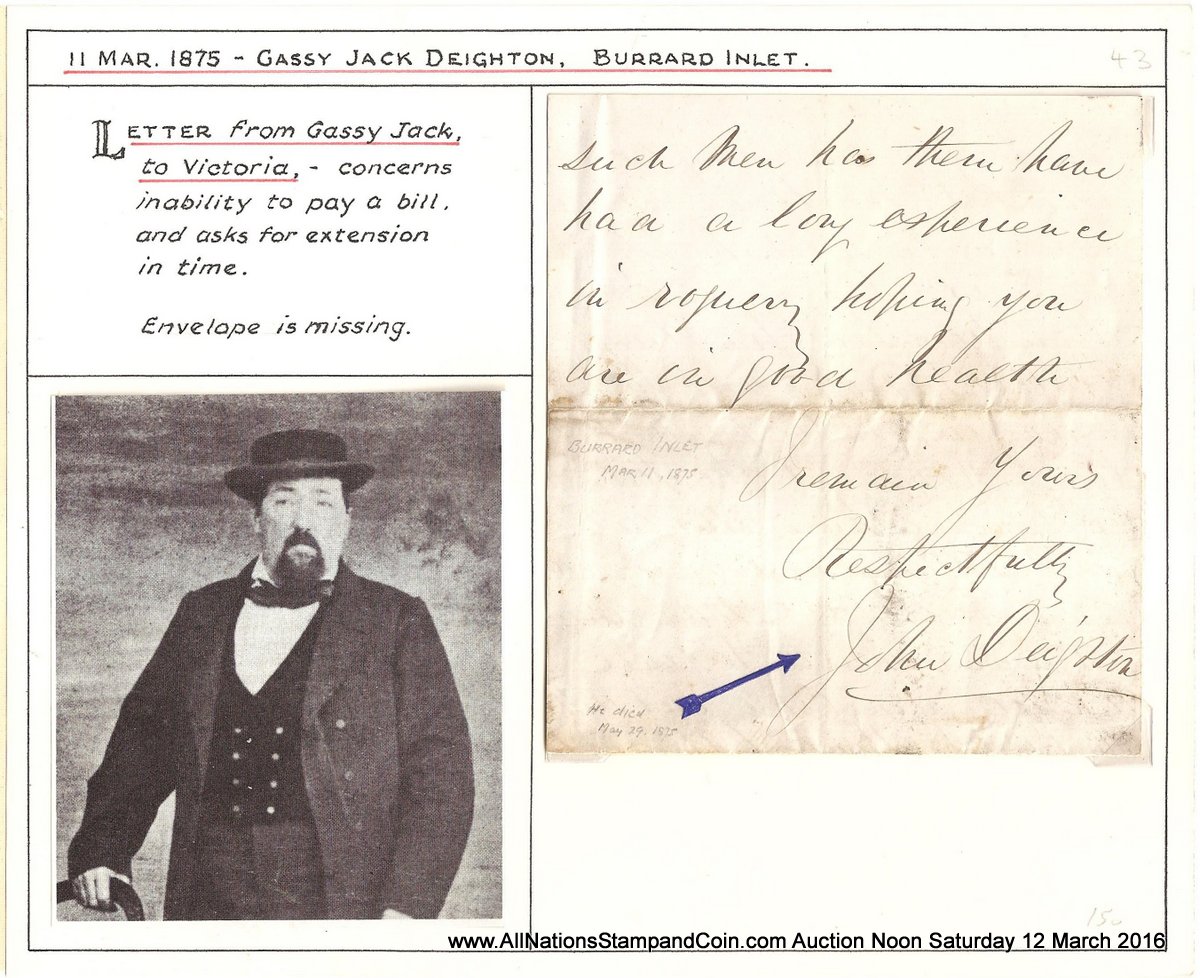 11 MAR. 1875 - GASSY JACK DEIGHTON, BURRARD INLET.
43
LETTER from Gassy Jack,
to Victoria, - concerns
inability to pay a bill,
and asks for extension
in time.
Envelope is missing.
such Men has them have
had a long experience
in roguery hoping you
are in good health
BURRARD INLET
MAR 11, 1875
I remain Yours
Respectfully
John Deighton
He died
May 29, 1875
150
www.AllNationsStampandCoin.com Auction Noon Saturday 12 March 2016